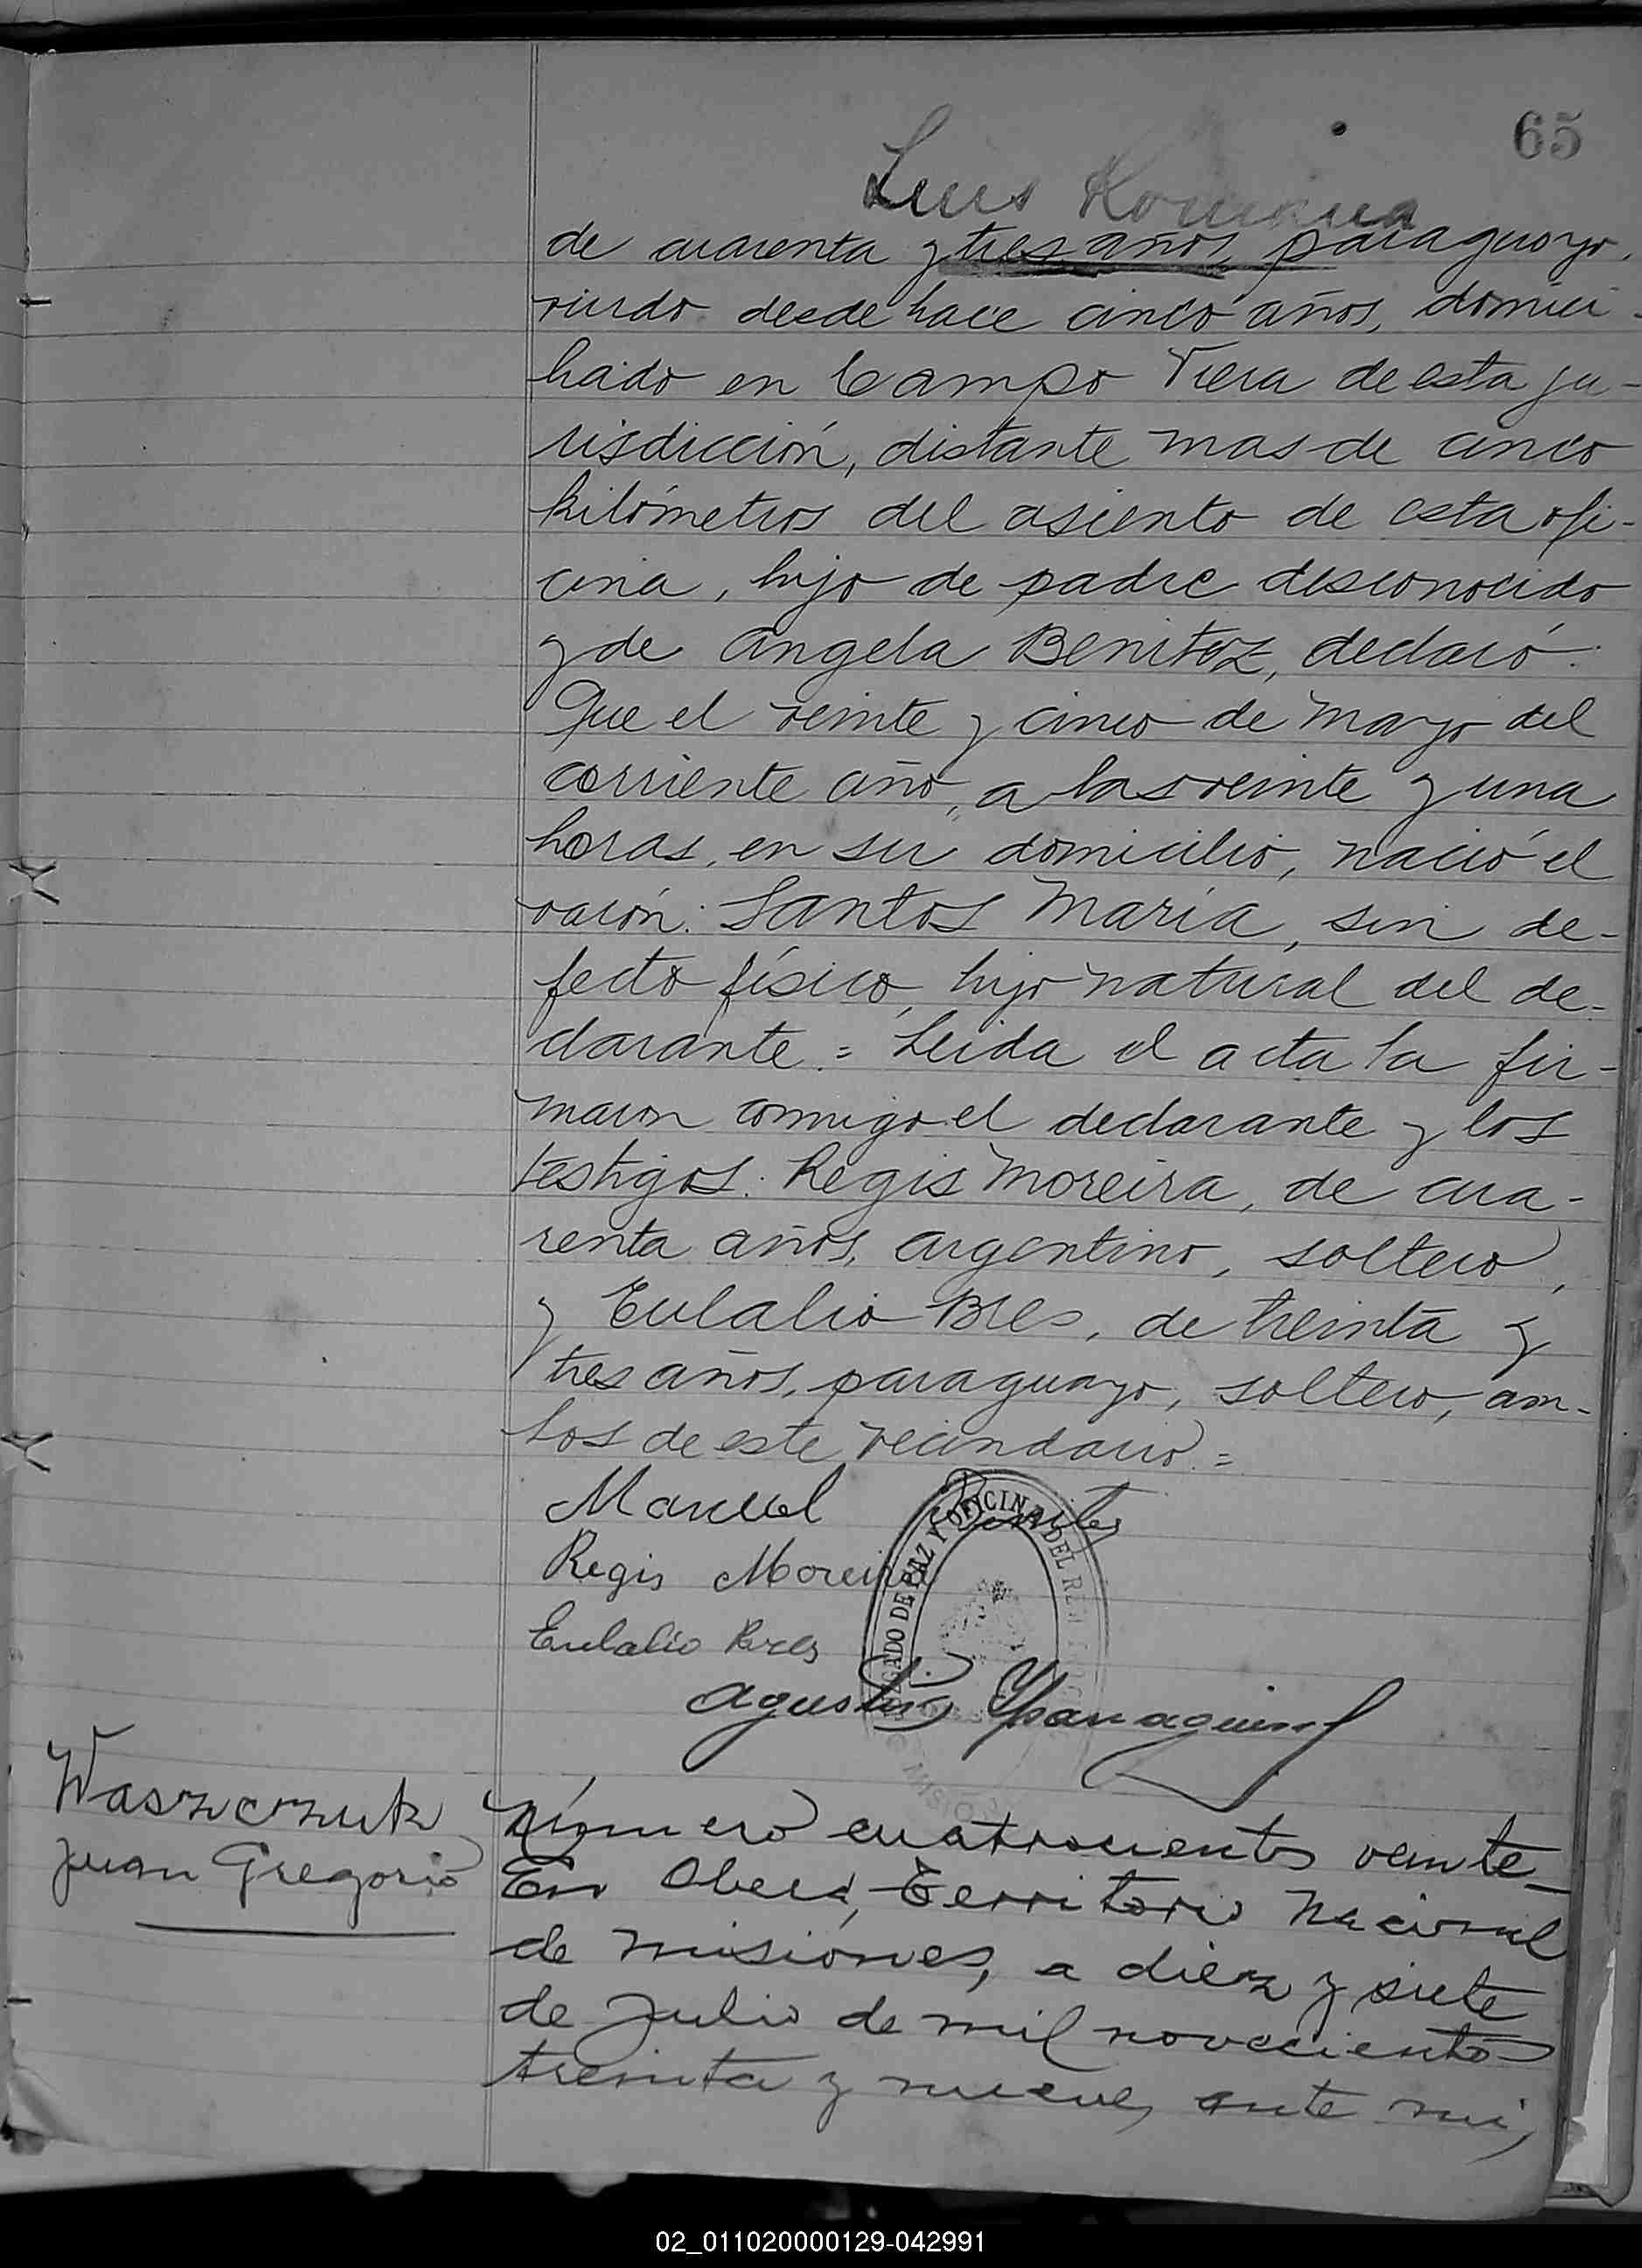 65
Luis
de cuarenta y tres años, paraguayo,
viudo desde hace cinco años, domici-
liado en Campo Viera de esta ju-
risdicción, distante mas de cinco
kilómetros del asiento de esta ofi-
cina, hijo de padre desconocido
y de Angela Benitez, declaró:
Que el veinte y cinco de Mayo del
corriente año, a las veinte y una
horas, en su domicilio, nació el
varón: Santos María, sin de-
fecto físico, hijo natural del de-
clarante = Leida el acta la fir-
maron conmigo el declarante y los
testigos: Regis Moreira, de cua-
renta años, argentino, soltero,
y Eulalio Bres, de treinta y
tres años, paraguayo, soltero, am-
bos de este vecindario =
Manuel Benitez
Regis Moreira
Eulalio Bres
JUZGADO DE PAZ Y OFICINA DEL
MISIONES
Agustin
Waszczuk
Juan Gregorio
Número cuatrocientos veinte_
En Oberá, Territorio Nacional
de Misiones, a diez y siete
de Julio de mil novecientos
treinta y nueve, ante mi,
02_011020000129-042991